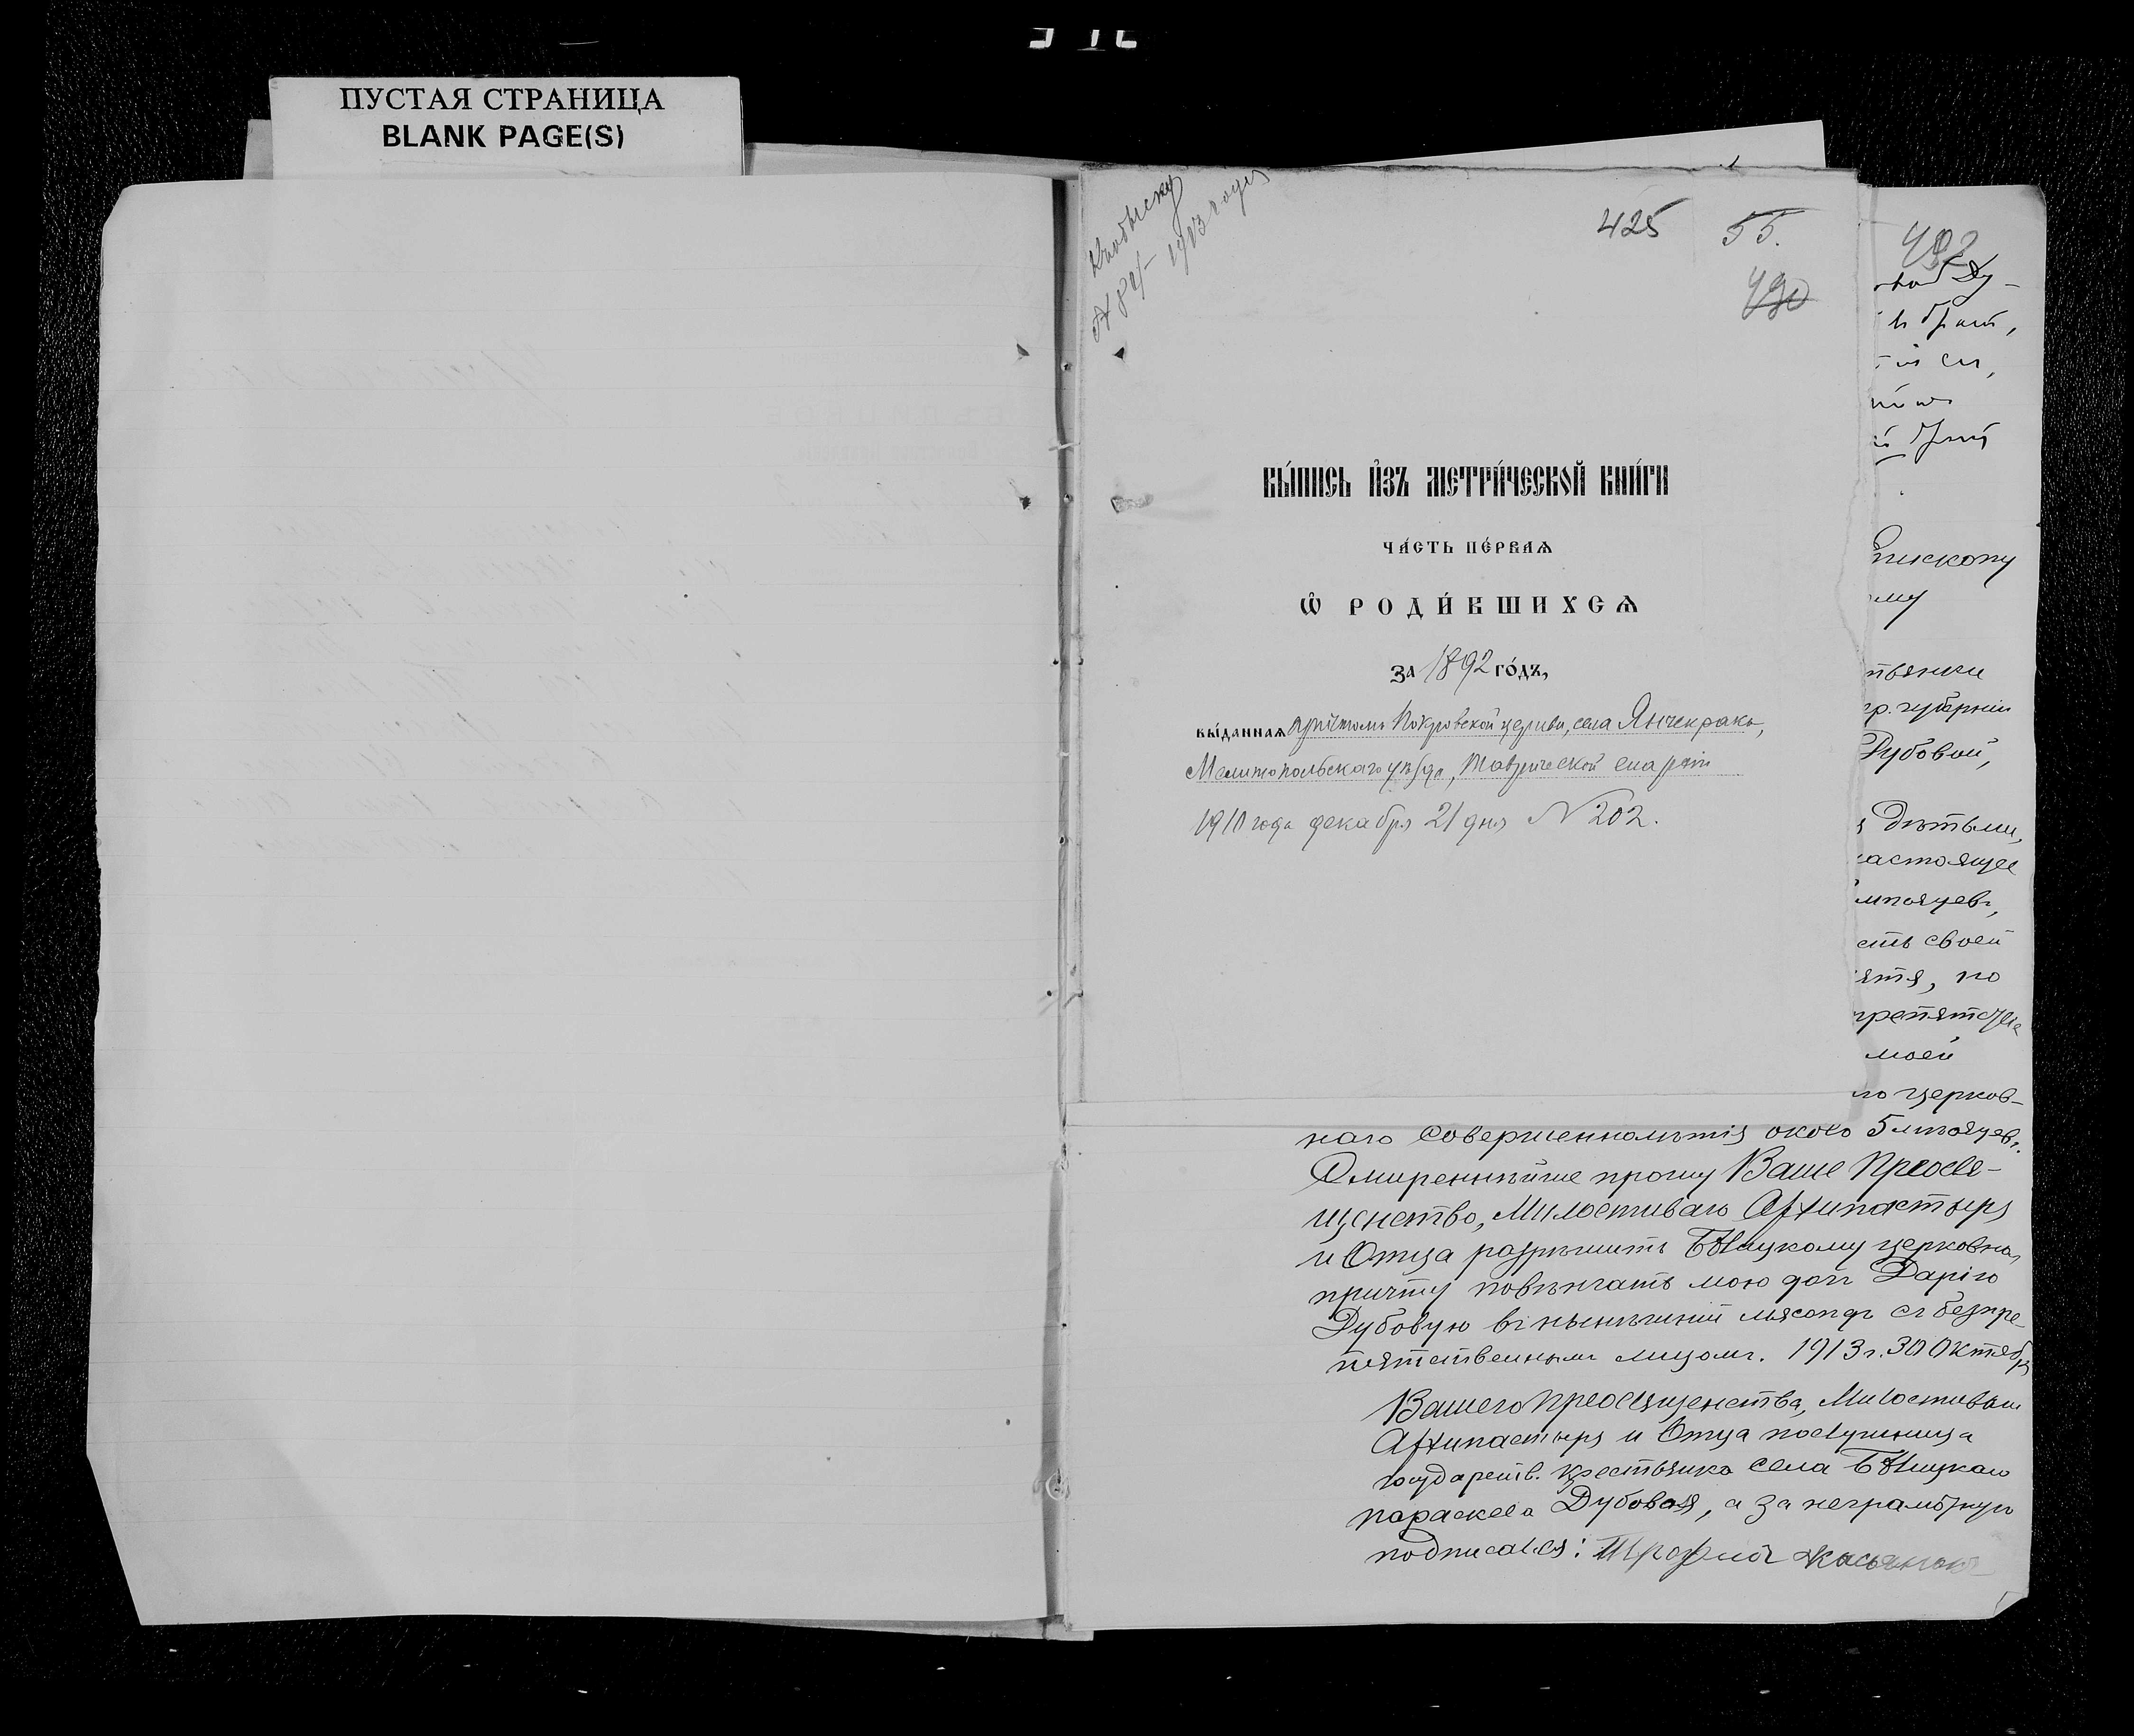 ПУСТАЯ СТРАНИЦА
BLANK PAGE(S)
1913 года
425 55.
490
492
ВЫ́ПИСЬ И҆ЗЪ МЕТРИ́ЧЕСКОЙ КНИ́ГИ
ЧА́СТЬ ПЕ́РВАѦ
Ѡ҆ РОДИ́ВШИХСѦ
ЗА 1892 ГО́ДЪ,
ВЫ́ДАННАѦ причтомъ Покровской церкви, села Янчекракъ,
Мелитопольскаго уѣзда, Таврической епархіи
1910 года декабря 21 дня № 202.
брат,
Епископу
ому
губерніи
Дубовой,
Дѣтьми,
настоящее
мѣсяцевъ,
своей
по
моей
церков-
наго совершеннолѣтія около 5 мѣсяцевъ.
Смиреннѣйше прошу Ваше Преосвя-
щенство, Милостиваго Архипастыря
и Отца разрѣшить Бѣлицкому церковно
причту повѣнчать мою дочь Дарію
Дубовую въ нынѣшній мясоѣдъ съ безпре
пятственнымъ лицомъ. 1913 г. 30 Октября
Вашего Преосвященства, Милостивый
Архипастырь и Отца послушница
государств. крестьянка села Бѣлицкаго
Параскева Дубовая, а за неграмотную
подписался: Трофимъ Касьяновъ